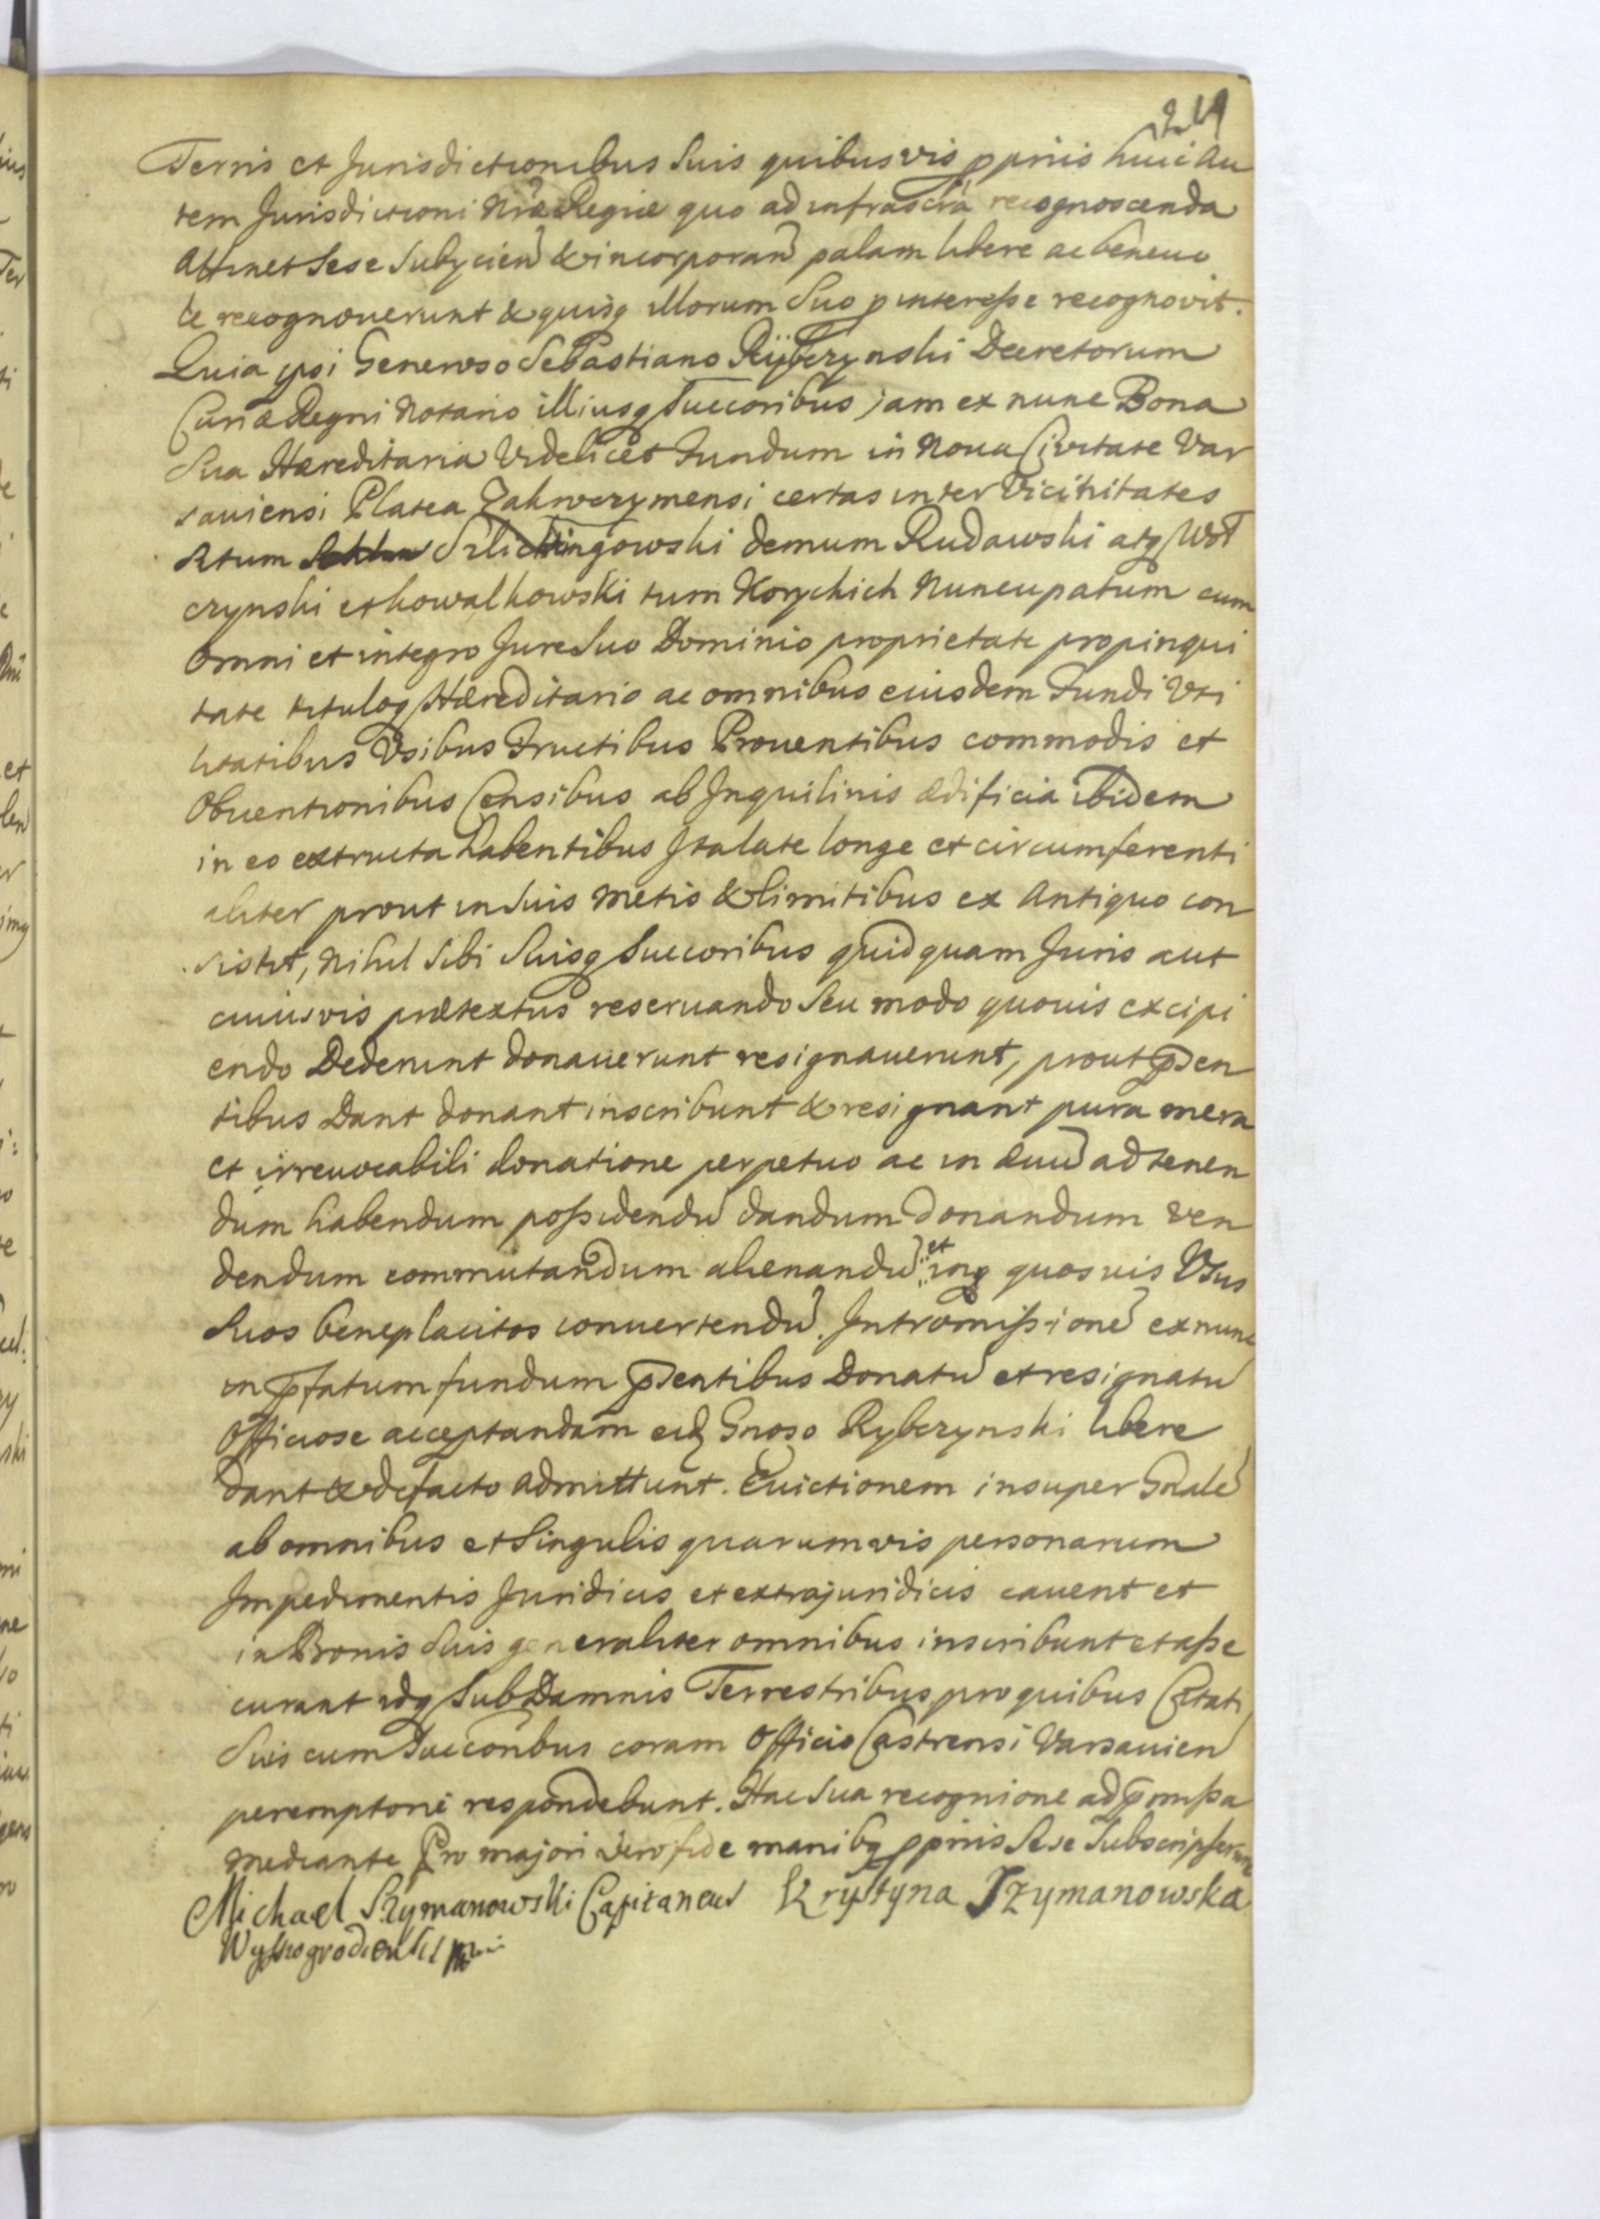 219
Terris et Jurisdictionibus Suis quibusvis ppriis huic Au
tem Jurisdictioni Nrae Regiae quo ad infrascra recognoscenda
Attinet Sese Subyciend & incorporand palam libere ac benevo
le recognoverunt & quisq illorum Suo p interesse recognovit.
Quia ipsi Generoso Sebastiano Rÿbczynski Decretorum
Curiae Regni Notario illiusq Succoribus jam ex nunc Bona
Sua Haereditaria Videlicet Fundum in Noua Civitate Var
sauiensi Platea Zakroczymensi certas inter Vicinitates
situm Szlichtingowski demum Rudawski atq Wol
czynski et kowalkowski tum Korychich Nuncupatum cum
Omni et integro Jure Suo Dominio proprietate propinqui
tate tituloq Haereditario ac omnibus eiusdem Fundi Uti
litatibus Usibus Fructibus Prouentibus commodis et
Obuentionibus Censibus ab Inquilinis aedificia ibidem
in eo extructa habentibus Ita late longe et circumferenti
aliter prout in Suis metis & limitibus ex Antiquo con
sistit, Nihil Sibi Suisq Succoribus quidquam Juris aut
cuiusvis praetextus reseruando Seu modo quouis excipi
endo Dederunt donauerunt resignauerunt, prout psen
tibus Dant donant inscribunt & resignant pura mera
et irreuocabili donatione perpetuo ac in aeuu ad tenen
dum habendum possidendu dandum donandum ven
dendum commutandum alienandu et inq quosuis Usus
Suos beneplacitos conuertendu. Intromissione ex nunc
in pfatum fundum psentibus Donatu et resignatu
Officiose acceptandam eid Gnoso Rybczynski libere
dant & defacto admittunt. Euictionem insuper Gnale
ab omnibus et Singulis quarumvis personarum
Impedimentis Juridicis et extrajuridicis cauent et
in Bonis Suis generaliter omnibus inscribunt et asse
curant idq Sub Damnis Terrestribus pro quibus Citati
Suis cum Succoribus coram Officio Castrensi Varsauien
peremptorie respondebunt. Hac Sua recognione ad pmissa
mediante Pro majori vero fide manibq ppriis Sese Subscripserunt
Michael Szymanowski Capitaneus Krystyna Szymanowska
Wyssogrodiensis mp